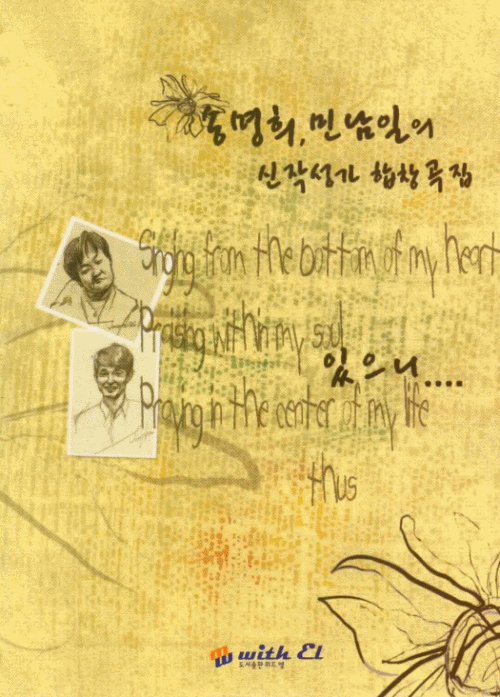 송명희, 민남일의
신작성가 합창곡집
Singing from the bottom of my heart
Praising within my soul
있으니....
Praying in the center of my life
thus
with El
도서출판 위드엘